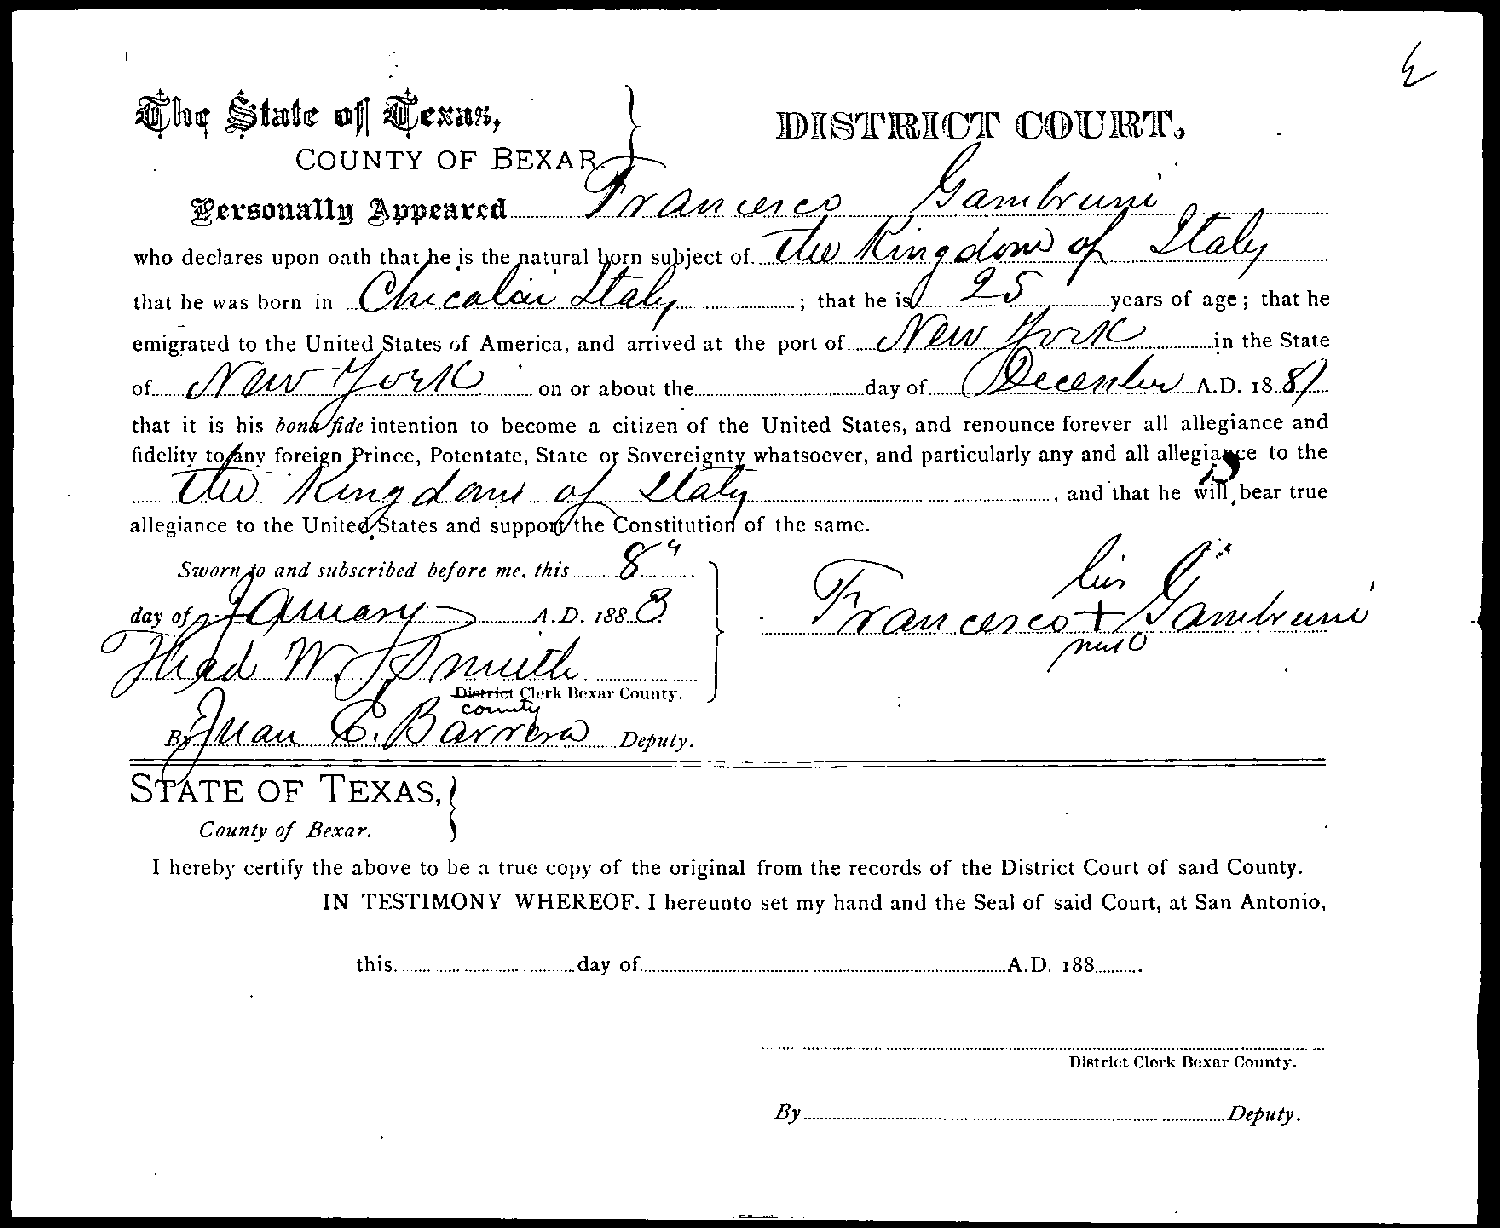 The State of Texas,
COUNTY OF BEXAR
DISTRICT COURT,
Personally Appeared Francesco Gambruni
who declares upon oath that he is the natural born subject of the Kingdom of Italy
that he was born in Chicalai Italy ; that he is 25 years of age; that he
emigrated to the United States of America, and arrived at the port of New York in the State
of New York on or about the day of December A.D. 1881
that it is his bona fide intention to become a citizen of the United States, and renounce forever all allegiance and
fidelity to any foreign Prince, Potentate, State or Sovereignty whatsoever, and particularly any and all allegiance to the
the Kingdom of Italy , and that he will bear true
allegiance to the United States and support the Constitution of the same.
Sworn to and subscribed before me, this 8"
day of January A.D. 1883
his
Francesco + Gambruni
Thad W. Smith
District Clerk Bexar County.
county
By Juan E. Barrera Deputy.
STATE OF TEXAS,
County of Bexar.
I hereby certify the above to be a true copy of the original from the records of the District Court of said County.
IN TESTIMONY WHEREOF. I hereunto set my hand and the Seal of said Court, at San Antonio,
this day of A.D. 188
District Clerk Bexar County.
By Deputy.